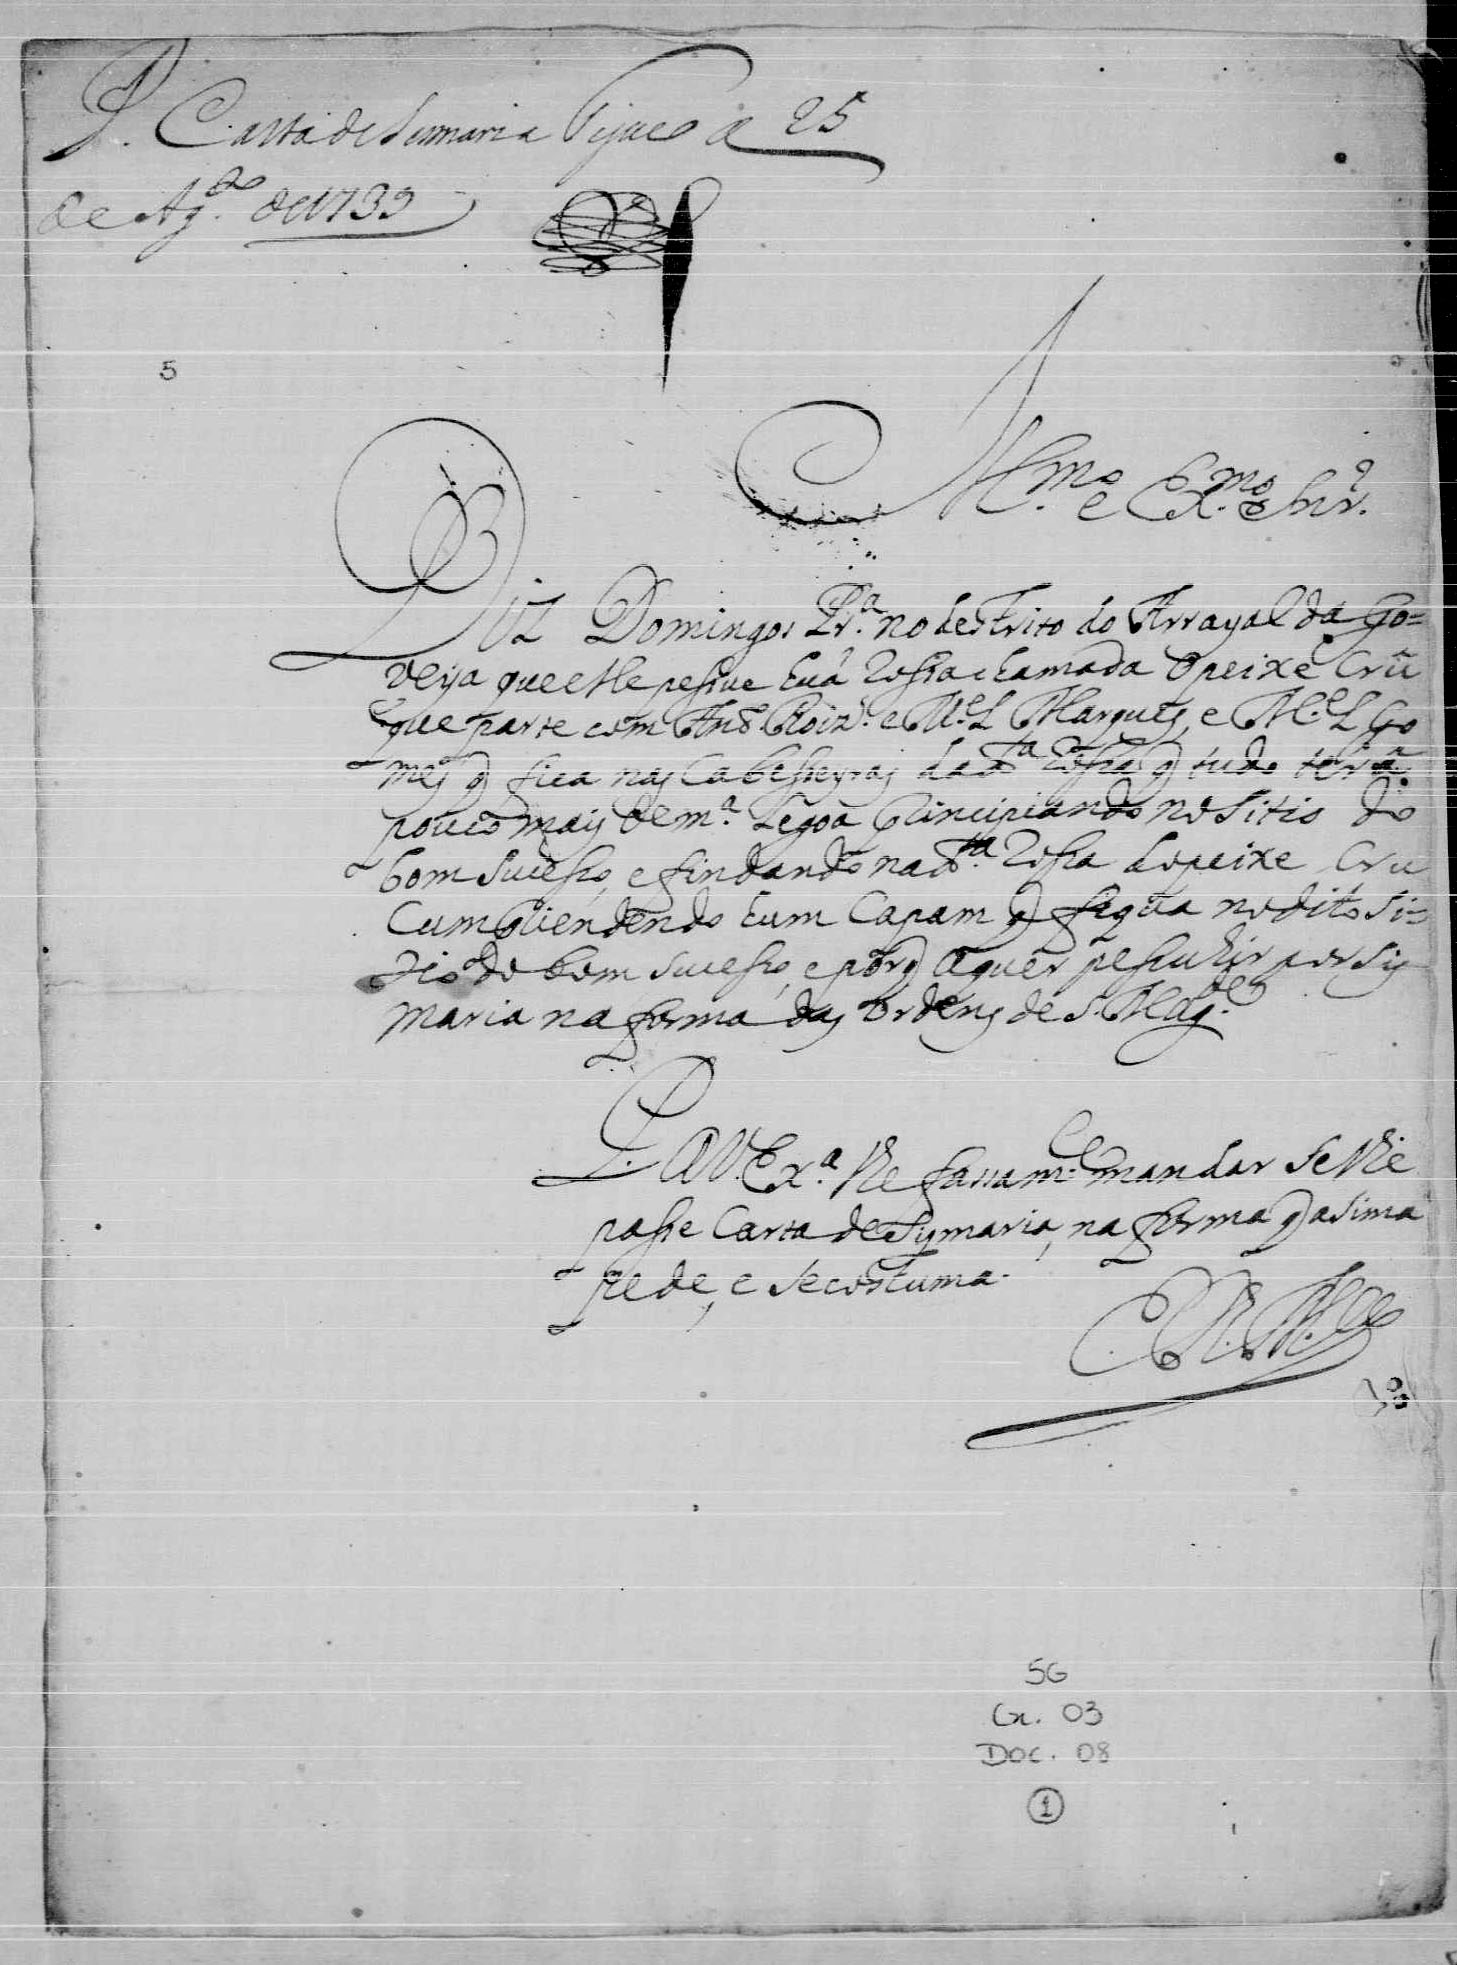 P. Carta de Sesmaria Tejuco a 25
de Ag.to de 1739
5
Ill.mo e Ex.mo Snr.
Diz Domingos Pr.ª no destrito do Arrayal da Go=
veya que elle pessue huá Rossa chamada o peixe Crú
que parte com Ant.º Roiz. e M.el Marques, e M.el Go
mes q fica nas Cabesseyras da d.ª Rossa q tudo terá
pouco mais de m.ª legoa principiando no Sitio do
bom Sucesso, e findando na d.ª Rossa do peixe Cru
Cumprendendo hum Capam q fiqua no dito Si=
tio do bom sucesso, e porq a quer pessuhir por sis
maria na forma das ordens de S. Mag.de
P. a V. Ex.ª lhe fassa m.ce mandar se lhe
passe Carta de Sismaria, na forma q asima
pede, e se costuma.
E. R. M.ce
SG
Cx. 03
DOC. 08
1